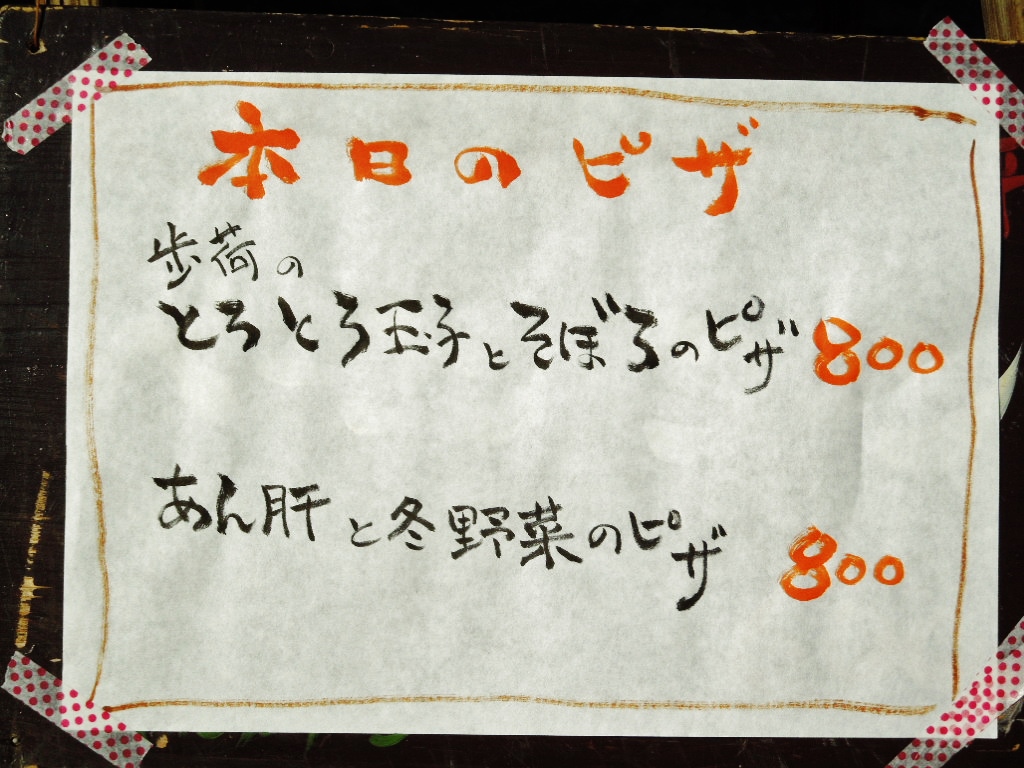 本日のピザ
歩荷の
とろとろ玉子とそぼろのピザ 800
あん肝と冬野菜のピザ 800